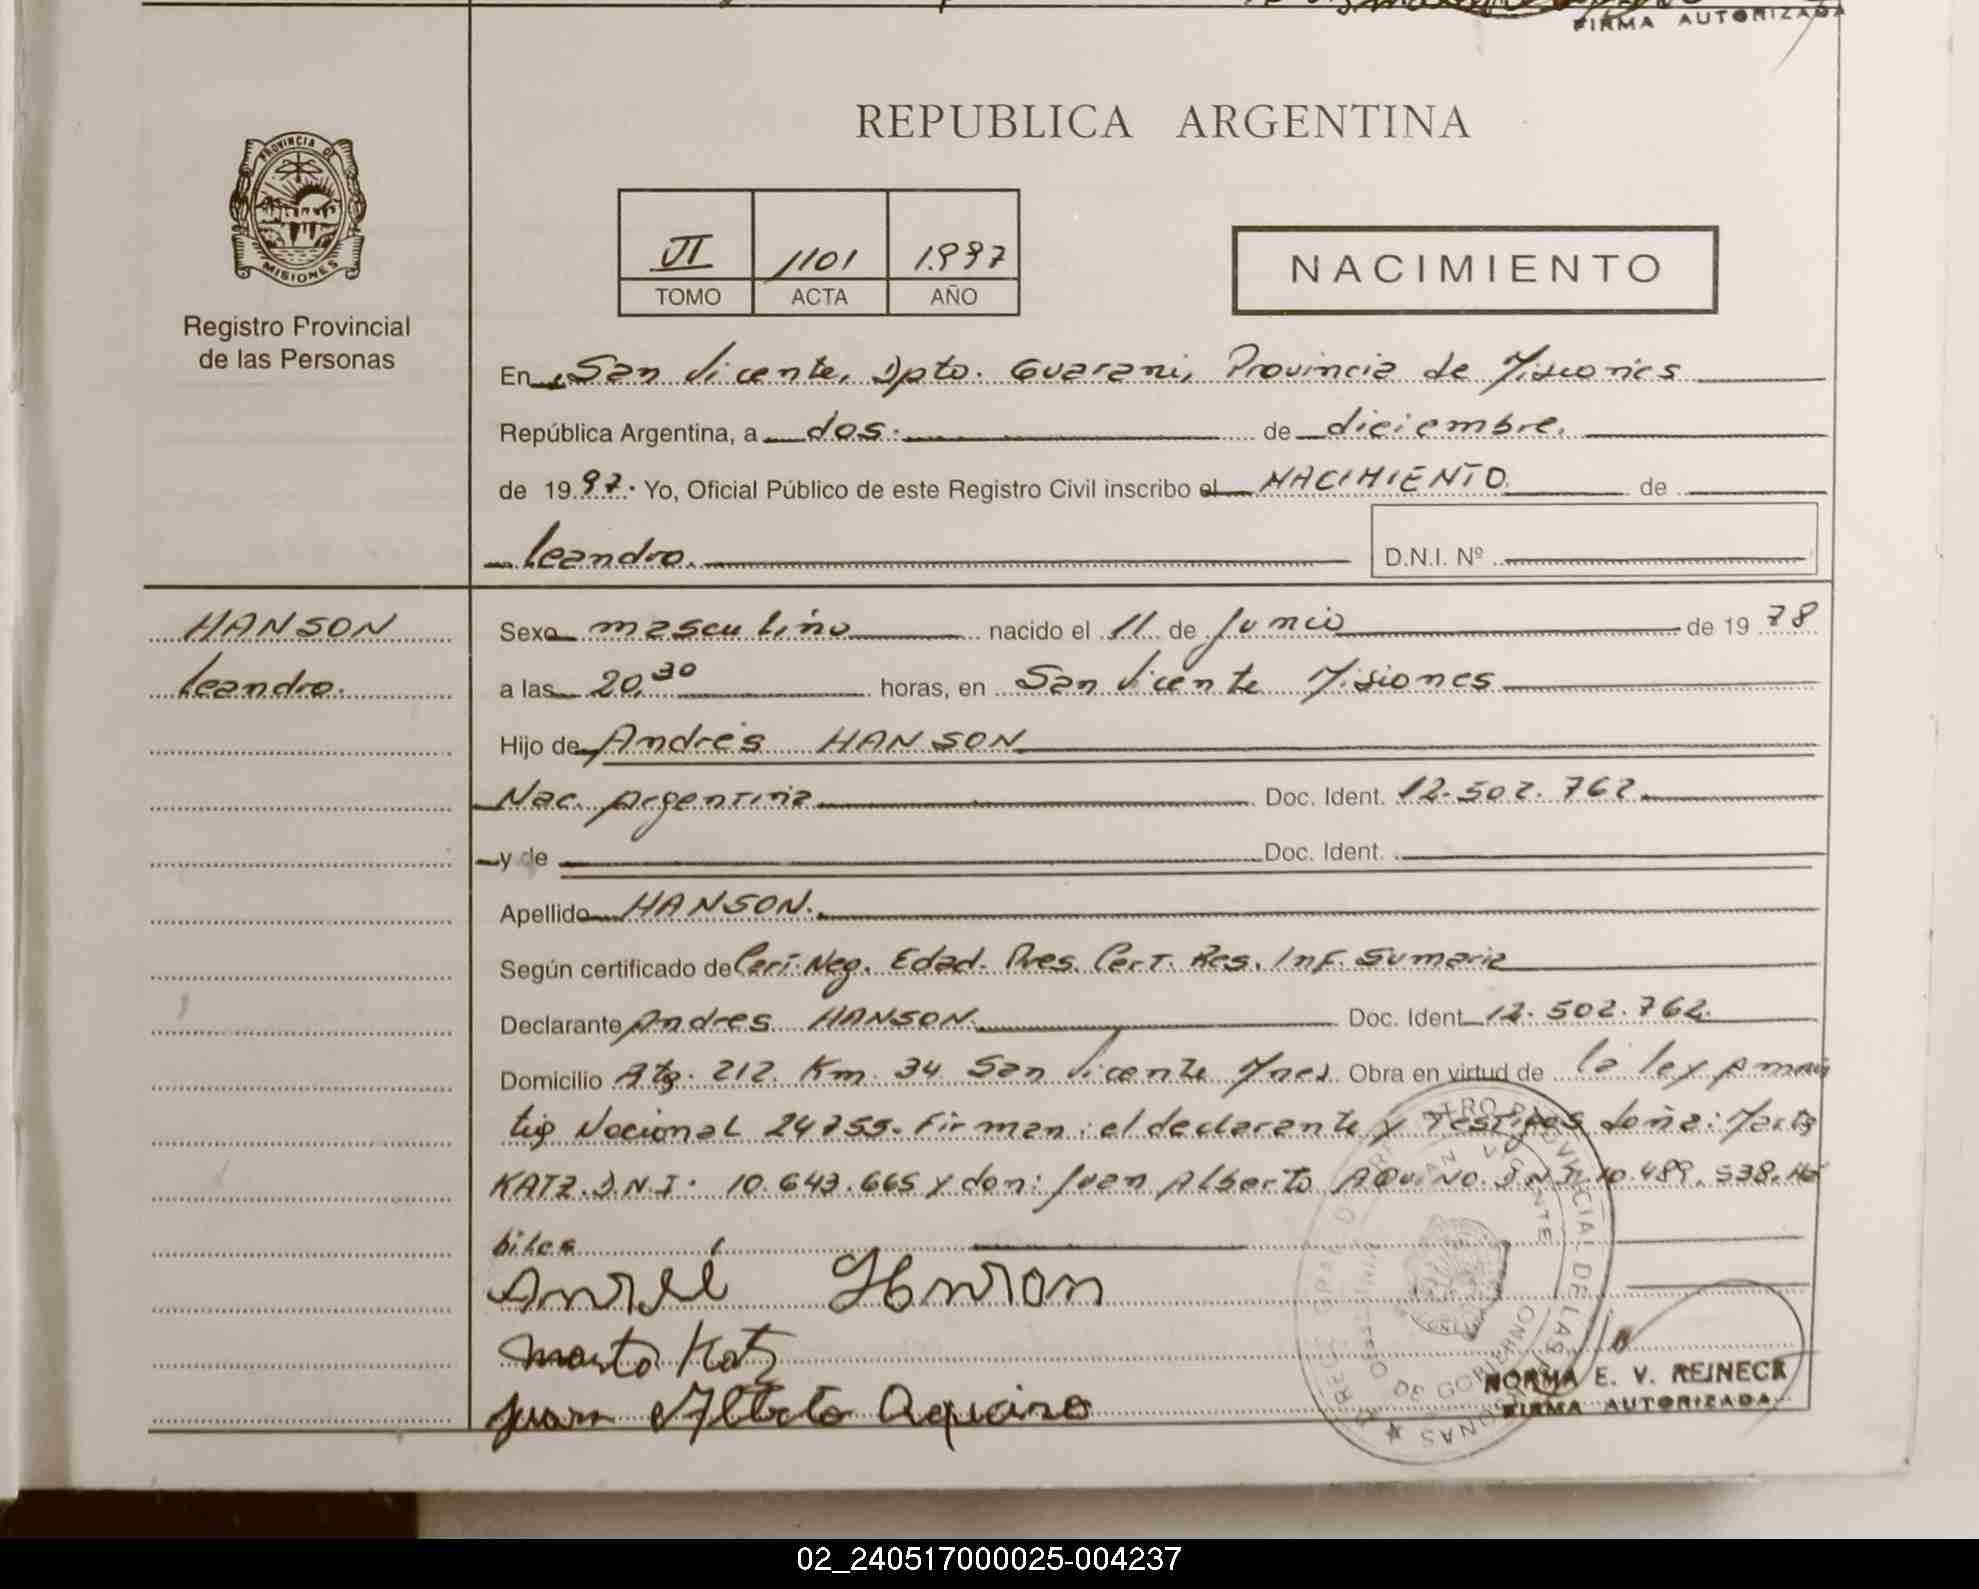 FIRMA AUTORIZADA
REPUBLICA ARGENTINA
PROVINCIA DE
MISIONES
Registro Provincial
de las Personas
VI 1101 1.997
TOMO ACTA AÑO
NACIMIENTO
En San Vicente, Dpto. Guarani, Provincia de Misiones
República Argentina, a dos. de diciembre.
de 1997. Yo, Oficial Público de este Registro Civil inscribo el NACIMIENTO de
Leandro. D.N.I. Nº
HANSON
Leandro.
Sexo masculino nacido el 11 de Junio de 1978
a las 20,30 horas, en San Vicente Misiones
Hijo de Andrés HANSON
Nac. Argentina Doc. Ident. 12.502.762
y de Doc. Ident.
Apellido HANSON.
Según certificado de Cert. Neg. Edad. Pres. Cert. Res. Inf. Sumaria
Declarante Andres HANSON Doc. Ident. 12.502.762.
Domicilio Atg. 212. Km. 34 San Vicente Mnes. Obra en virtud de la ley Amnis
tia Nacional 24755. Firman: el declarante y Testigos doña: Marta
KATZ. D.N.I. 10.643.665 y don: Juan Alberto AQUINO. D.N.I. 10.489.538. Há
biles
Andrés Hanson
Marta Katz
Juan Alberto Aquino
NORMA E. V. REINECK
FIRMA AUTORIZADA
02_240517000025-004237